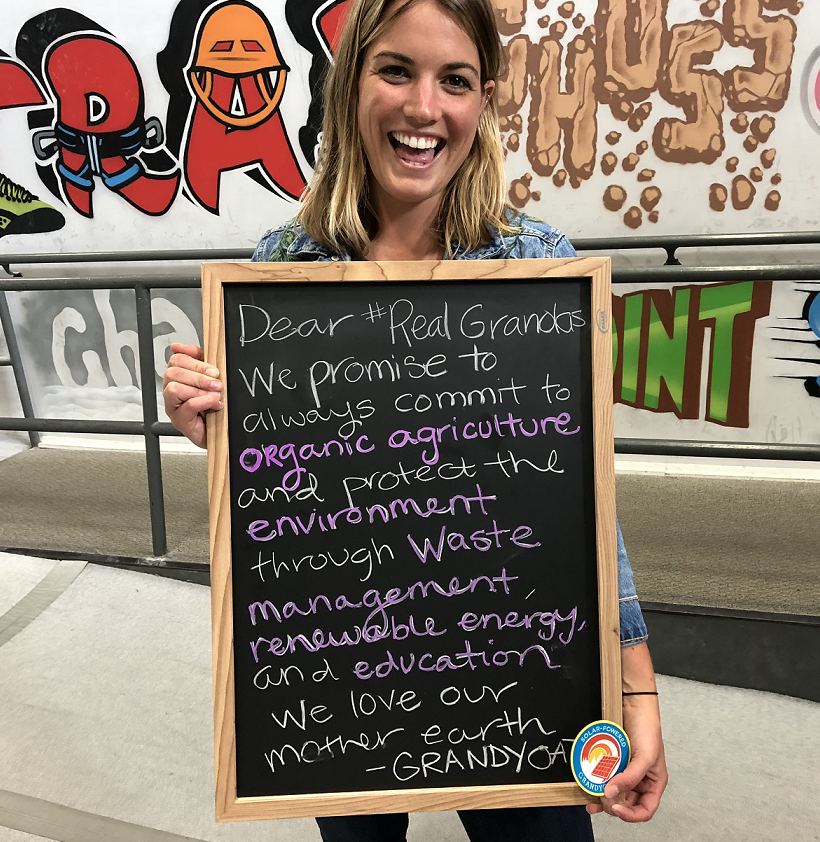 TRA
PHUSS
Cha
OINT
Dear #Real Grandas
We promise to
always commit to
organic agriculture
and protect the
environment
through Waste
management,
renewable energy,
and education
We love our
mother earth
-GRANDYOA
SOLAR-POWERED